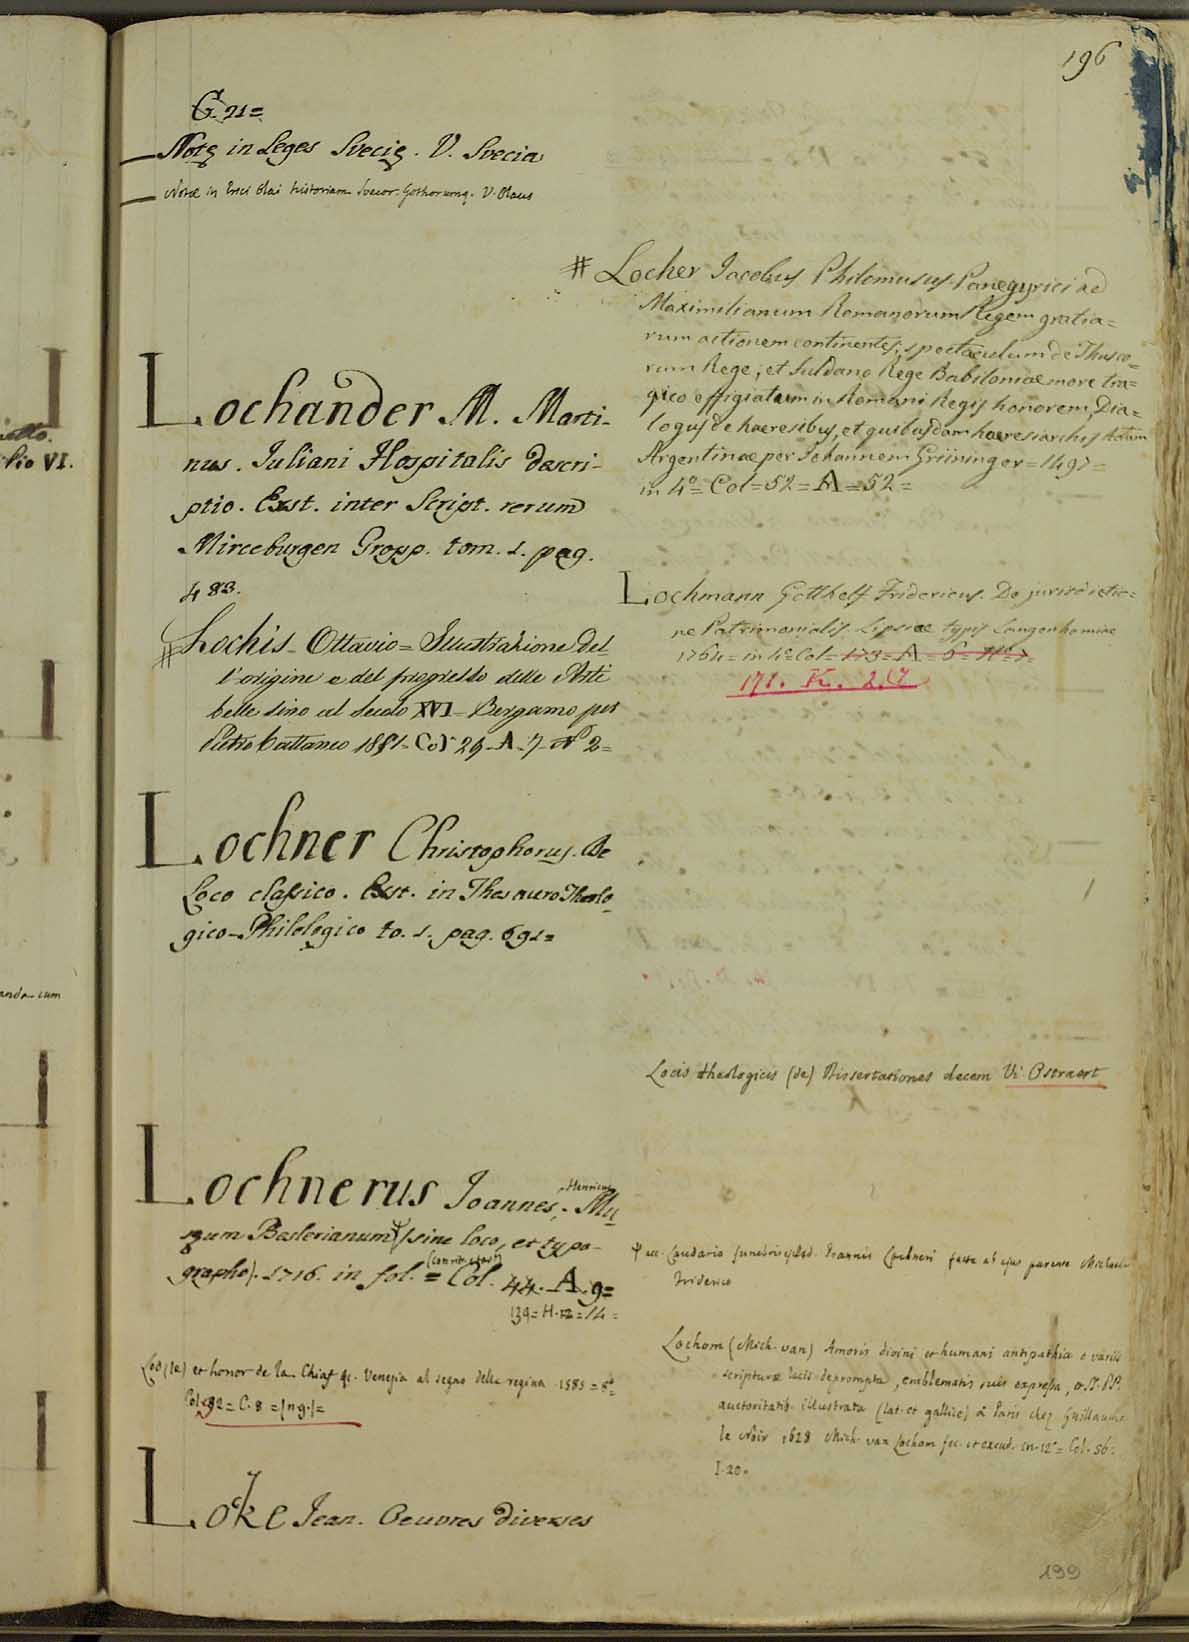 196
G. 21=
Notę in Leges Svecię. V. Svecia
Notæ in Erici Olai historiam Suecor. Gothorumq. V. Olaus
Lochander M. Marti-
nus. Iuliani Hospitalis descri-
ptio. Exst. inter Script. rerum
Wirceburgen Gropp. tom. 1. pag.
483.
# Lochis Ottavio = Illustrazione del
l'origine e del progresso delle Arti
belle sino al secolo XVI - Bergamo per
Pietro Cattaneo Col 29 - A - 7 - N 2=
Lochner Christophorus. De
Loco classico. Exst. in Thesauro Theolo-
gico-Philologico to. 1. pag. 691=
Lochnerus Ioannes Henricus. Mu-
sęum Beslerianum (sine loco, et typo-
grapho). 1716. in fol. = Col. 44. A. 9=
139=H.12=14=
Lod (le) et honor de la Venezia al segno della regina 1585 = 8°=
Col 92 = C. 8 = [ng.]=
Locke Jean. Oeuvres diverses
# Locher Jacobus Philomusus Panegyrici ad
Maximilianum Romanorum Regem gratia=
rum actionem continentes, spectaculum de Thurco=
rum Rege, et Suldano Rege Babiloniae more tra=
gico effigiatum in Romani Regis honorem, Dia=
logus de haeresibus, et quibusdam haeresiarchis
Argentinae per Johannem Grüninger = 1497=
in 4°= Col=52=A=52=
Lochmann Gotthelf Fridericus. De jurisdictio=
ne Patrimonialis. Lipsiae typis Langenhemiae
1764= in 4° Col= 173=A=6= N° 7=
171. K. 2.
Locis theologicis (de) Dissertationes decem Vi. Ostraert
acc. Laudatio funebris Ioannis facta ab ejus parente Michaele
Friderico
Lochom (Mich. van) Amoris divini et humani antipathia e variis
scripturæ locis deprompta, emblematis suis expressa, et SS. PP.
auctoritatib. illustrata (lat. et gallice) à Paris chez Guillaume
le Noir 1628 Mich. van Lochom fec. et excud. in-12°= Col. 56=
I. 20.
199